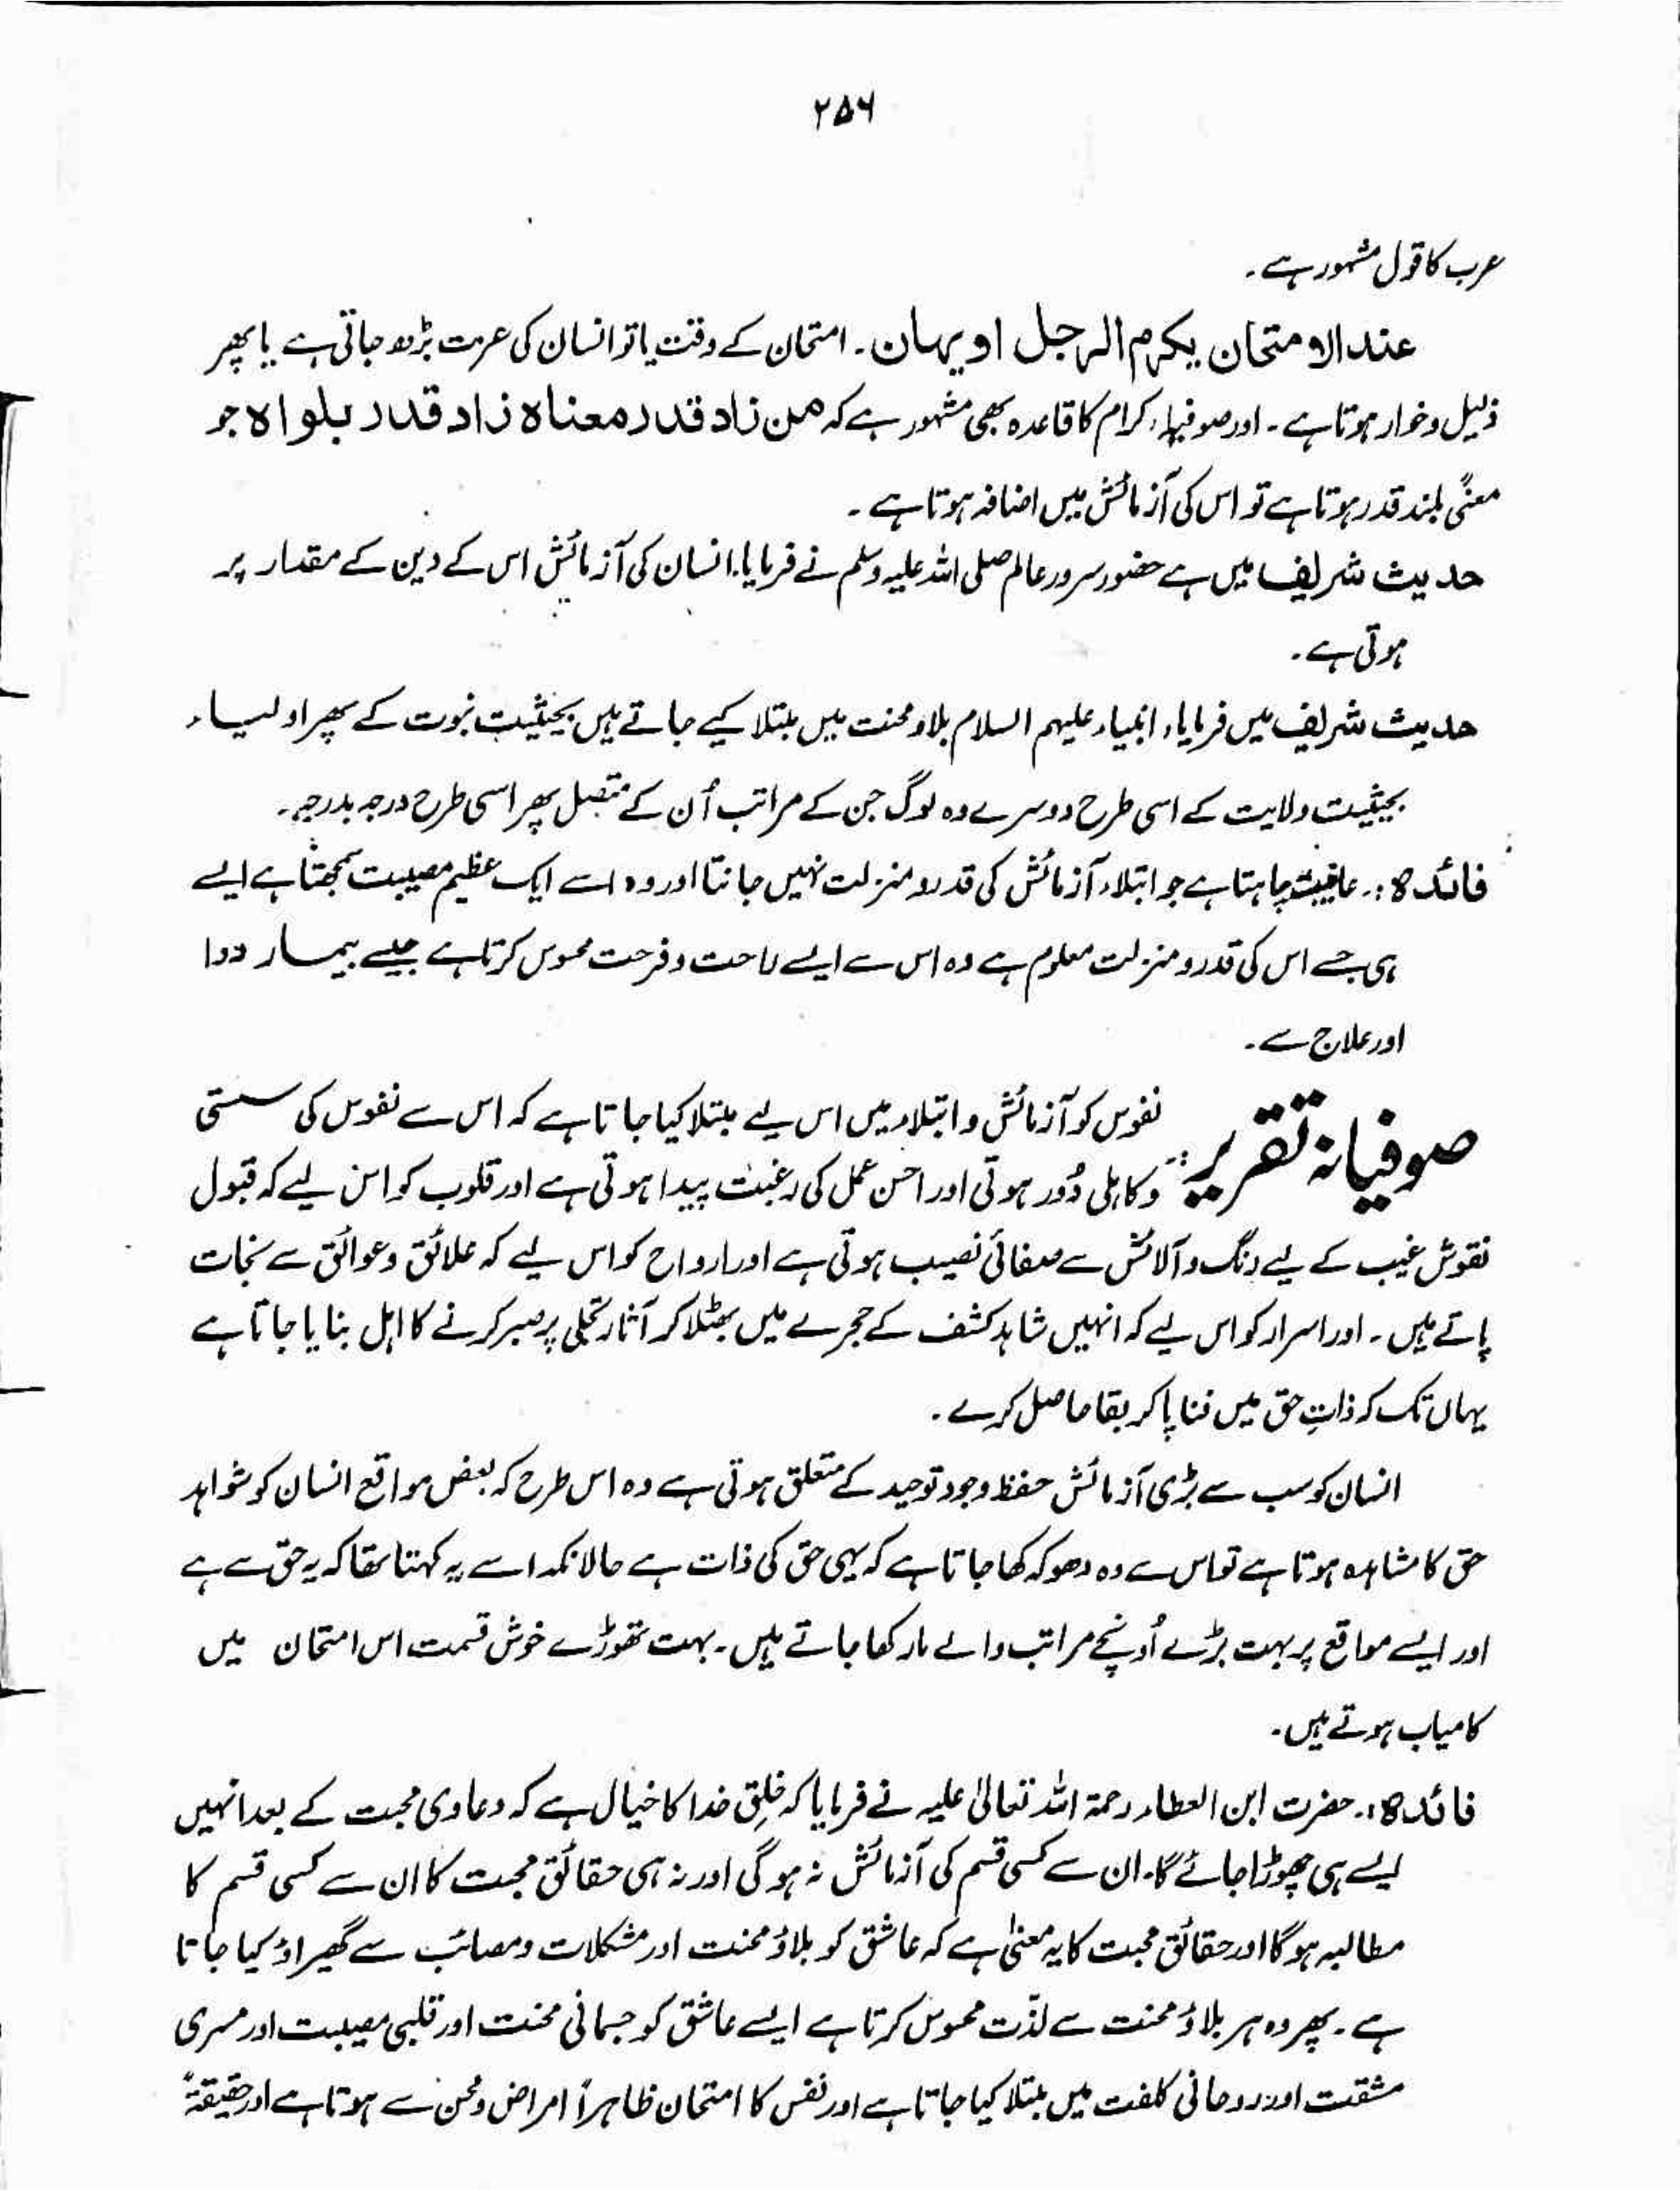 ۲۵۶
عرب کا قول مشہور ہے۔
عند الامتحان یکرم الرجل او یہان۔ امتحان کے وقت یا تو انسان کی عزت بڑھ جاتی ہے یا پھر
ذلیل و خوار ہوتا ہے۔ اور صوفیاء کرام کا قاعدہ بھی مشہور ہے کہ من زاد قدر معناہ زاد قدر بلواہ جو
معنًی بلند قدر ہوتا ہے تو اس کی آزمائش میں اضافہ ہوتا ہے۔
حدیث شریف میں ہے حضور سرور عالم صلی اللہ علیہ وسلم نے فرمایا۔ انسان کی آزمائش اس کے دین کے مقدار پر
ہوتی ہے۔
حدیث شریف میں فرمایا، انبیاء علیہم السلام بلاو محنت میں مبتلا کیے جاتے ہیں بحیثیت نبوت کے پھر اولیاء
بحیثیت ولایت کے اسی طرح دوسرے وہ لوگ جن کے مراتب اُن کے متصل پھر اسی طرح درجہ بدرجہ۔
فائدہ :۔ عافیت چاہتا ہے جو ابتلاء آزمائش کی قدر و منزلت نہیں جانتا اور وہ اسے ایک عظیم مصیبت سمجھتا ہے ایسے
ہی جسے اس کی قدر و منزلت معلوم ہے وہ اس سے ایسے راحت و فرحت محسوس کرتا ہے جیسے بیمار دوا
اور علاج سے۔
صوفیانہ تقریر :۔ نفوس کو آزمائش و ابتلاء میں اس لیے مبتلا کیا جاتا ہے کہ اس سے نفوس کی سستی
و کاہلی دُور ہوتی اور احسن عمل کی رغبت پیدا ہوتی ہے اور قلوب کو اس لیے کہ قبول
نقوش غیب کے لیے رنگ و آلائش سے صفائی نصیب ہوتی ہے اور ارواح کو اس لیے کہ علائق و عوائق سے نجات
پاتے ہیں۔ اور اسرار کو اس لیے کہ انہیں شاہد کشف کے حجرے میں بھٹلا کر آثار تجلی پر صبر کرنے کا اہل بنایا جاتا ہے
یہاں تک کہ ذاتِ حق میں فنا پا کر بقا حاصل کرے۔
انسان کو سب سے بڑی آزمائش حفظ وجود توحید کے متعلق ہوتی ہے وہ اس طرح کہ بعض مواقع انسان کو شواہد
حق کا مشاہدہ ہوتا ہے تو اس سے وہ دھوکہ کھا جاتا ہے کہ یہی حق کی ذات ہے حالانکہ اسے یہ کہنا تھا کہ یہ حق سے ہے
اور ایسے مواقع پر بہت بڑے اُونچے مراتب والے مار کھا جاتے ہیں۔ بہت تھوڑے خوش قسمت اس امتحان میں
کامیاب ہوتے ہیں۔
فائدہ :۔ حضرت ابن العطاء رحمۃ اللہ تعالیٰ علیہ نے فرمایا کہ خلقِ خدا کا خیال ہے کہ دعاوی محبت کے بعد انہیں
ایسے ہی چھوڑا جائے گا۔ ان سے کسی قسم کی آزمائش نہ ہو گی اور نہ ہی حقائق محبت کا ان سے کسی قسم کا
مطالبہ ہو گا اور حقائق محبت کا یہ معنیٰ ہے کہ عاشق کو بلاؤ محنت اور مشکلات و مصائب سے گھیراؤ کیا جاتا
ہے۔ پھر وہ ہر بلاؤ محنت سے لذّت محسوس کرتا ہے ایسے عاشق کو جسمانی محنت اور قلبی مصیبت اور سری
مشقت اور روحانی کلفت میں مبتلا کیا جاتا ہے اور نفس کا امتحان ظاہراً امراض و محن سے ہوتا ہے اور حقیقۃً